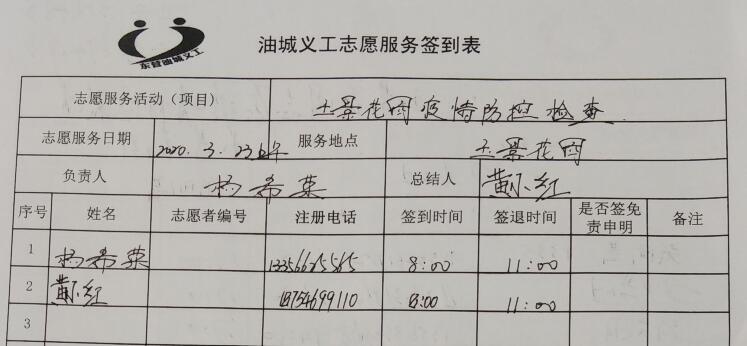 东营油城义工
油城义工志愿服务签到表
志愿服务活动（项目） 土景花园疫情防控检查
志愿服务日期 2020.3.23上午 服务地点 土景花园
负责人 杨希荣 总结人 黄小红
序号 姓名 志愿者编号 注册电话 签到时间 签退时间 是否签免责申明 备注
1 杨希荣 8:00 11:00
2 黄小红 13754699110 8:00 11:00
3